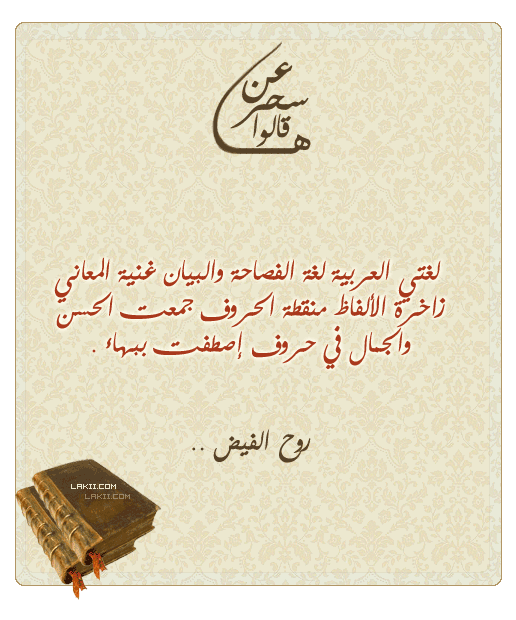 عن
سحرها
قالوا
لغتي العربية لغة الفصاحة والبيان غنية المعاني
زاخرة الألفاظ منقطة الحروف جمعت الحسن
والجمال في حروف إصطفت ببهاء .
روح الفيض ..
LAKII.COM
LAKII.COM